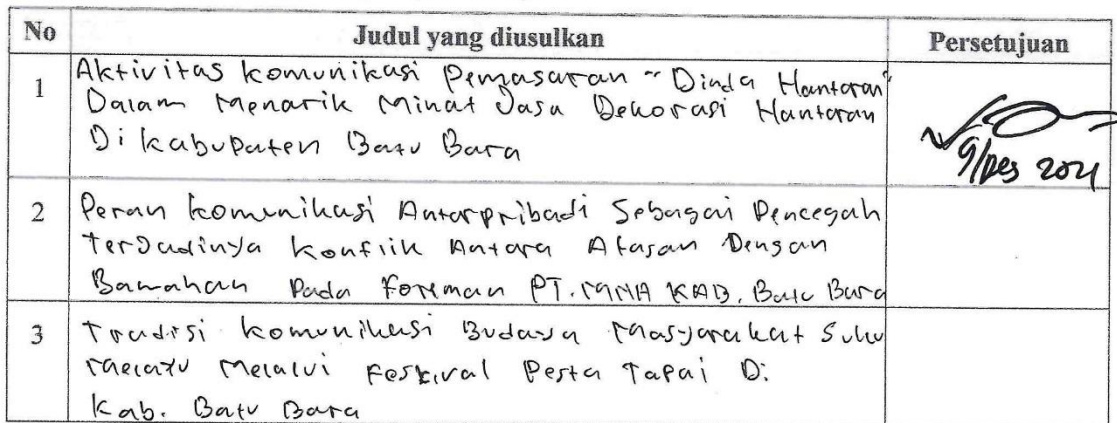 No Judul yang diusulkan Persetujuan
1 Aktivitas komunikasi Pemasaran "Dinda Hantaran"
Dalam Menarik Minat Jasa Dekorasi Hantaran
Di kabupaten Batu Bara
9/Des 2021
2 Peran komunikasi Antarpribadi Sebagai Pencegah
terjadinya konflik Antara Atasan Dengan
Bawahan Pada Foreman PT. KAB. Batu Bara
3 Tradisi komunikasi Budaya Masyarakat Suku
Melayu Melalui Festival Pesta Tapai Di
Kab. Batu Bara